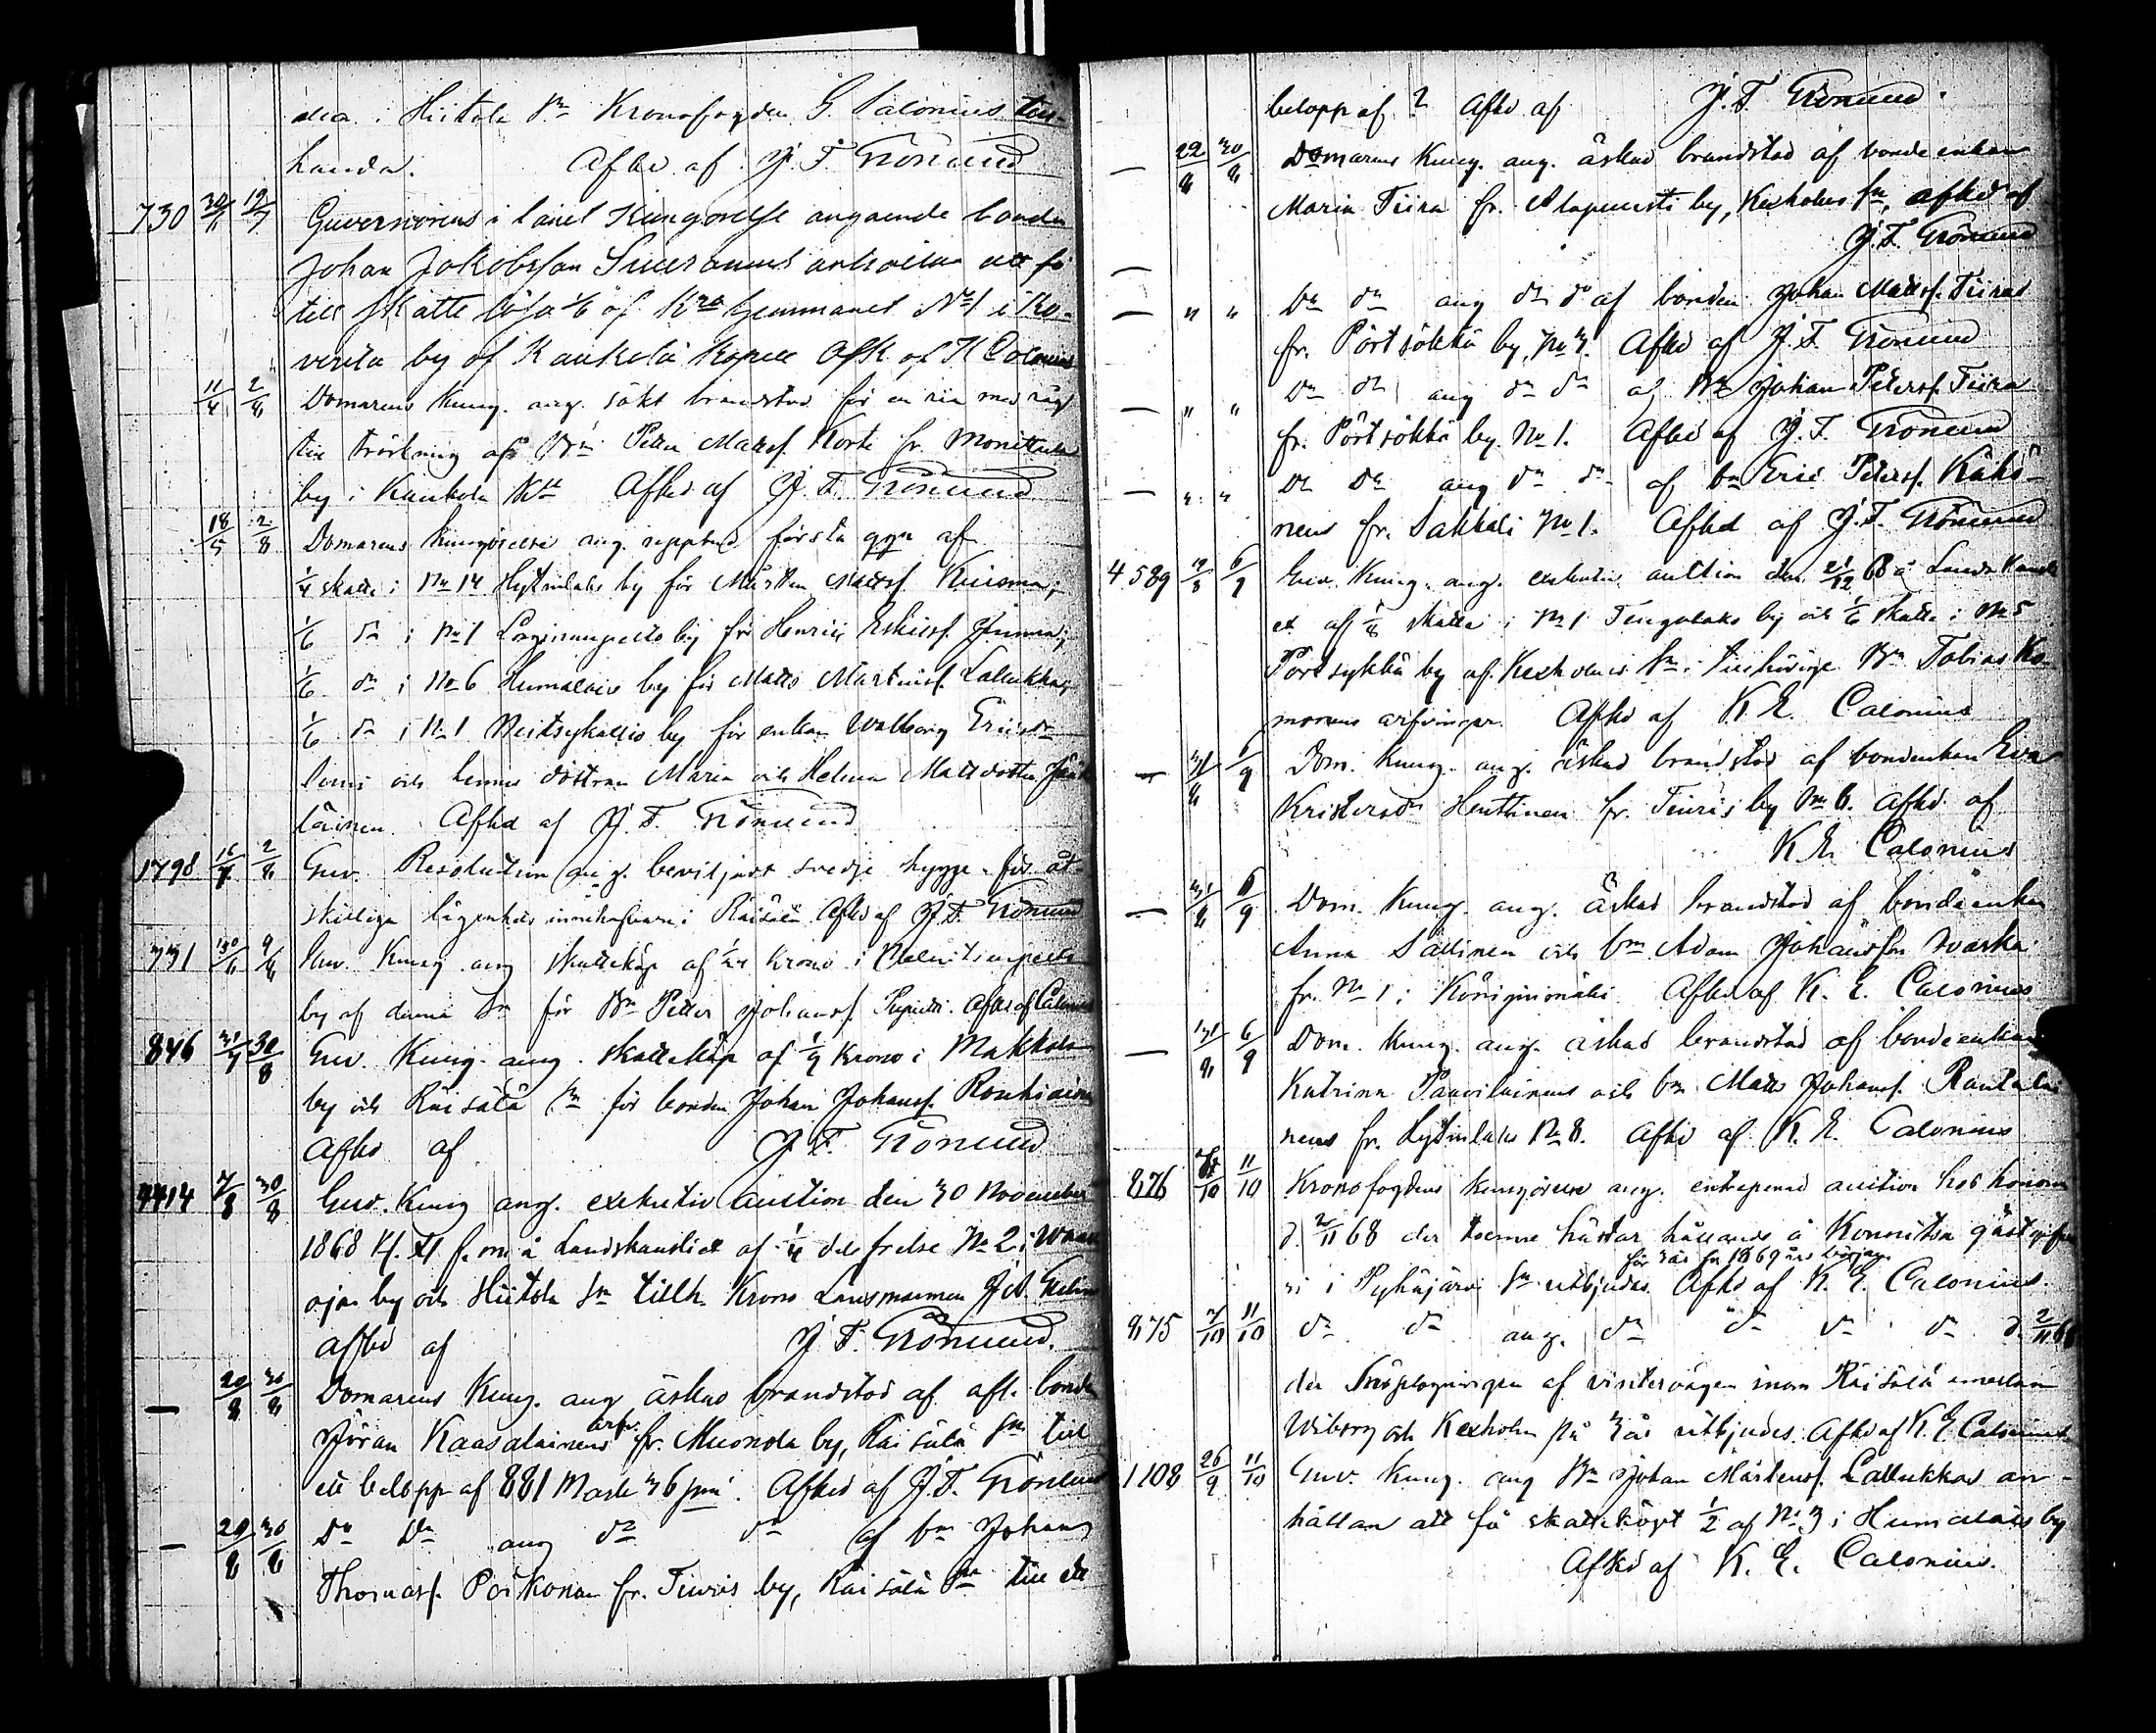 i Hiitola Sn Kronofogden G. Salonius till-
handa. Afkd af J. F. Grönlund
730 30/6 19/7 Guvernörens i länet Kungörelse angående bonden
Johan Jakobsson anhållan att få
till skatte lösa 1/6 af Kro hemmanet No 1 i Ko-
verila by af Kaukola kapell Afk af K Calonius
11/4 2/8 Domarens Kung. ang. sökt brandstod för en ria med råg
till torkning af Bn Petter Matsf. Korte fr.
by i Kaukola Kll Afkd af J. F. Grönlund
18/5 2/8 Domarens kungörelse ang. uppbud första ggn af
1/4 skatte i No 14 Hytinlaks by för Mårten Mattsf. Kiisma;
1/6 do i No 1 by för Henrik Eskilsf.
1/6 do i No 6 Humalais by för Matts Mårtensf. Lallukka,
1/6 do i No 1 by för enkan Walborg Ericsdr
och hennes döttrar Maria och Helena Mattsdotter
läinen. Afkd af J. F. Grönlund
1798 16/7 2/8 Guv. Resolution ang. beviljadt svedje hygge för åt-
skillige lägenhets innehafvare i Räisälä Afkd af J. F. Grönlund
731 30/6 9/8 Guv. Kung ang skatteköp af 1/24 krono i
by af denna Sn för Bn Petter Johansf. Afkd af Calonius
846 31/7 30/8 Guv. Kung. ang. skatteköp af 1/4 Krono i Makkola
by och Räisälä Sn för bonden Johan Johansf. Ronkainen
Afkd af J. F. Grönlund
4414 7/8 30/8 Guv. Kung ang. exekutiv auktion den 30 November
1868 Kl. XI f. m. å Landskansliet af 1/4 dels frelse No 2 i
oja by och Hiitola Sn tillh. Krono Länsmannen
Afkd af J. F. Grönlund.
— 20/8 30/8 Domarens Kung. ang äskad brandstod af afl. bonden
Jöran Kaasalainens arfv. fr. Muonola by, Räisälä Sn till
ett belopp af 881 Mark 36 pni. Afkd af J. F. Grönlund
— 20/8 30/8 Do Do ang do do af bn Johan
Thomasf. Poikonen fr. Tiuris by, Räisälä Sn till ett
belopp af ? Afkd af J. F. Grönlund.
— 22/8 30/8 Domarens Kung. ang. äskad brandstod af bonde enkan
Maria Tiira fr. by, Kexholms Sn, afkd af
J. F. Grönlund
— " " Do do ang do do af bonden Johan Mattsf. Tiiras
fr. Pörtsökkä by, No 3. Afkd af J. F. Grönlund
— " " Do do ang do do af Bn Johan Petersf. Tiira
fr. Pörtsökkä by. No 1. Afkd af J. F. Grönlund
— " " Do Do ang do do af bn Eric Petersf. Käkö-
nens fr. Sakkali No 1. Afkd af J. F. Grönlund
4589 19/8 6/9 Guv. Kung. ang. exekutiv auktion den 21/12 68 å Landskansli
et af 1/8 skatte i No 1 Tengolaks by och 1/6 skatte i No 5
Pörtsykkä by af Kexholms Sn tillhörige Bn Tobias Ko-
monens arfvingar. Afkd af K. E. Calonius
— 31/8 6/9 Dom. kung. ang. äskad brandstod af bondenkan Eva
Kristersdr Henttinen fr. Tiuris by No 6. Afkd af
K. E. Calonius
— 31/8 6/9 Dom. Kung. ang. äskad brandstod af bondeenkan
Anna Sallinen och bn Adam Johansson
fr. No 1 i Afkd af K. E. Calonius
— 31/8 6/9 Dom. kung. ang. äskad brandstod af bondeenkan
Katrina Paavilainens och bn Matts Johansf. Rantalai
nens fr. Hytinlaks No 8. Afkd af K. E. Calonius
876 7/10 11/10 Kronofogdens kungörelse ang. entreprenad auktion hos honom
d. 2/11 68 der hästar hållande å Konnitsa gästgifve
för 3 år fr 1869 års början
ri i Pyhäjärvi Sn utbjudes. Afkd af K. E. Calonius.
875 7/10 11/10 do do ang. do do do do d. 2/11 68
der Snöplogningen af vintervägen inom Räisälä emellan
Wiborg och Kexholm på 3 år utbjudes. Afkd af K. E. Calonius
1108 26/9 11/10 Guv. Kung. ang Bn Johan Mårtensf. Lallukkas an-
hållan att få skatteköpt 1/2 af No 3 i Humalais by
Afkd af K. E. Calonius.